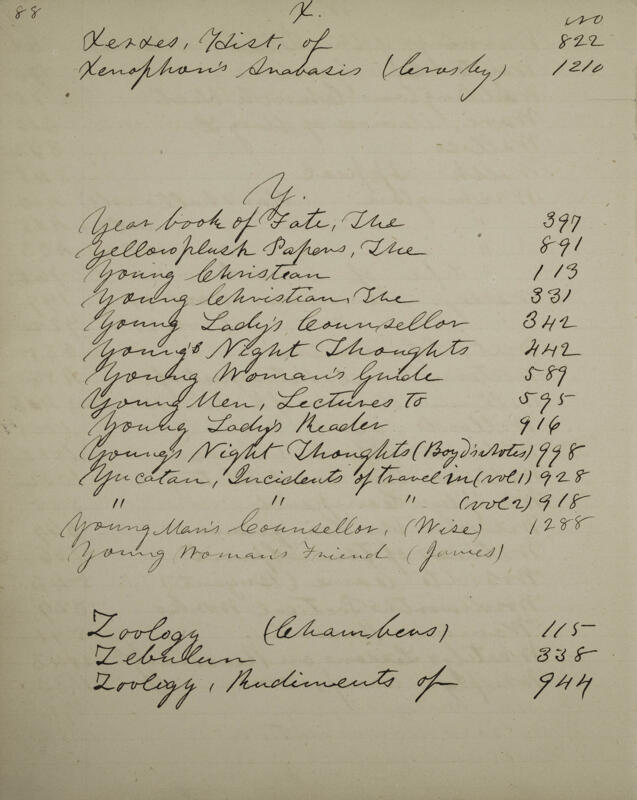 88
X.
No
Xerxes, Hist. of 822
Xenophon's Anabasis (Crosby) 1210
Y.
Year book of Fate, The 397
Yellowplush Papers, The 891
Young Christian 113
Young Christian, The 331
Young Lady's Counsellor 342
Young's Night Thoughts 442
Young Woman's Guide 589
Young Men, Lectures to 595
Young Lady's Reader 916
Young's Night Thoughts (Boyd's Notes) 998
Yucatan, Incidents of travel in (vol 1) 928
" " " (vol 2) 918
Young Man's Counsellor, (Wise) 1288
Young Woman's Friend (James)
Zoology (Chambers) 115
Zebulun 338
Zoology, Rudiments of 944